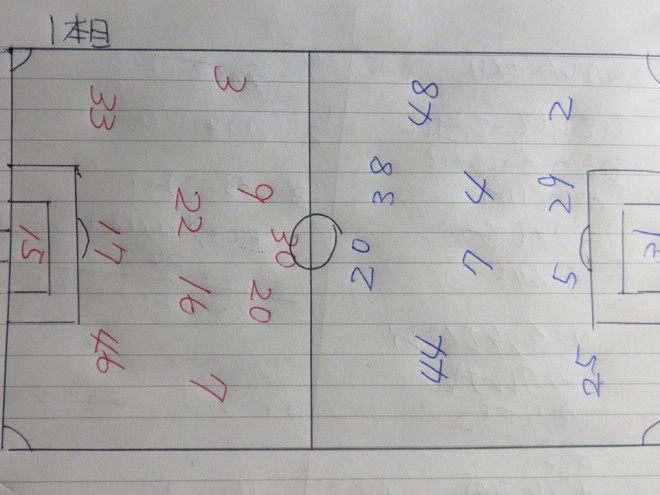 1本目
33
3
17
46
15
22
16
9
30
20
7
48
2
38
4
29
20
7
5
44
25
31